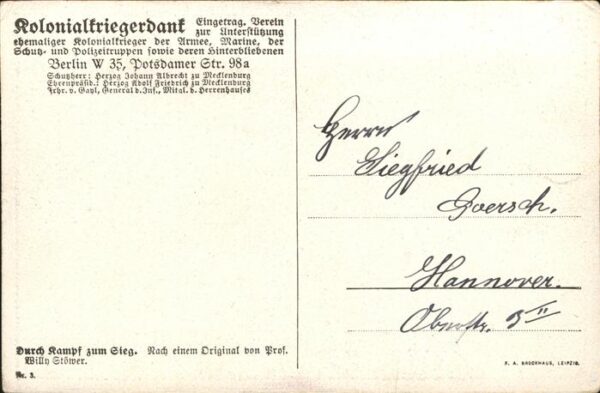 Kolonialkriegerdank Eingetrag. Verein
zur Unterstützung
ehemaliger Kolonialkrieger der Armee, Marine, der
Schutz- und Polizeitruppen sowie deren Hinterbliebenen
Berlin W 35, Potsdamer Str. 98a
Schutzherr: Herzog Johann Albrecht zu Mecklenburg
Ehrenpräsid.: Herzog Adolf Friedrich zu Mecklenburg
Frhr. v. Gayl, General d. Inf., Mitgl. d. Herrenhauses
Herrn
Siegfried
Goersch.
Hannover.
Oberstr. 5 II
Durch Kampf zum Sieg. Nach einem Original von Prof.
Willy Stöwer.
Nr. 3.
F. A. BROCKHAUS, LEIPZIG.